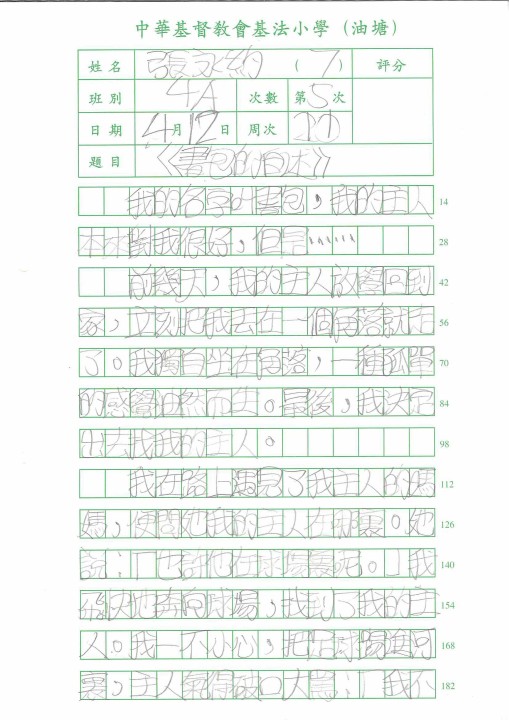 中華基督教會基法小學（油塘）
姓名 張永約 （7） 評分
班別 4A 次數 第5次
日期 4月12日 周次 20
題目 《書包的自述》
我的名字叫書包，我的主人 14
本來對我很好，但是…… 28
前幾天，我的主人放學回到 42
家，立刻把我丟在一個角落就走 56
了。我獨自坐在角落，一種孤單 70
的感覺油然而生。最後，我決定 84
出去找我的主人。 98
我在路上遇見了我主人的媽 112
媽，便問她我的主人在那裏。她 126
說：「也許他在球場裏呢。」我 140
飛快地奔向球場，找到了我的主 154
人。我一不小心，把足球踢進河 168
裏，主人氣得破口大罵：「我不 182